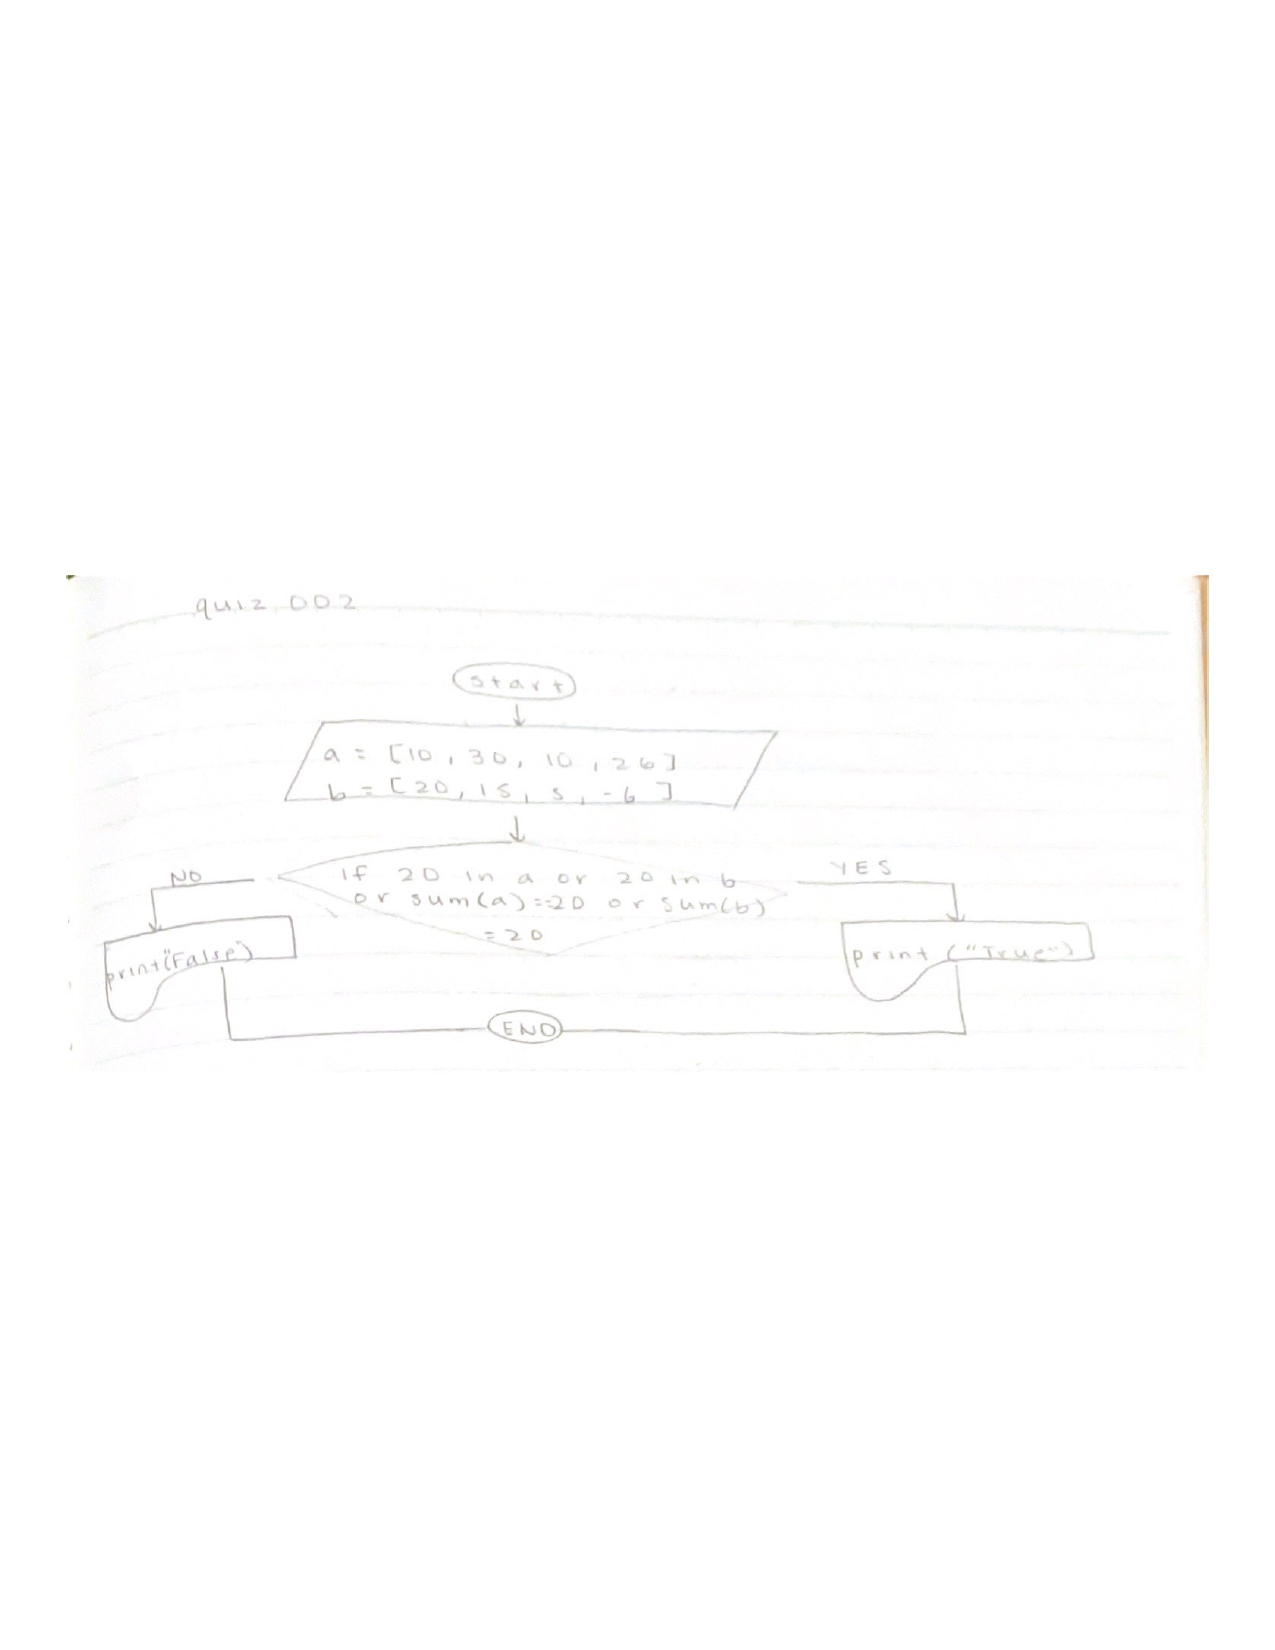 quiz 002
start
a = [10, 30, 10, 26]
b = [20, 15, 5, -6]
NO
if 20 in a or 20 in b
or sum(a)==20 or sum(b)
=20
YES
print("False")
print ("True")
END